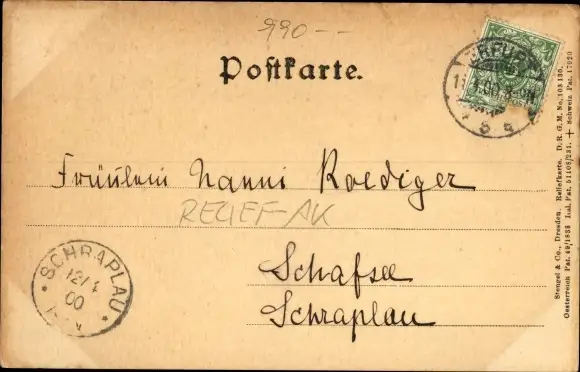 990.--
Postkarte.
ERFURT
5 a
Fräulein Nanni Roediger
RELIEF-AK
Schafsee
Schraplau
* SCHRAPLAU *
12/1
00
Stengel & Co., Dresden. Reliefkarte. D. R. G. M. No. 103 130.
Oesterreich Pat. 49/1835 Ital. Pat. 51108/231. + Schweiz Pat. 17920